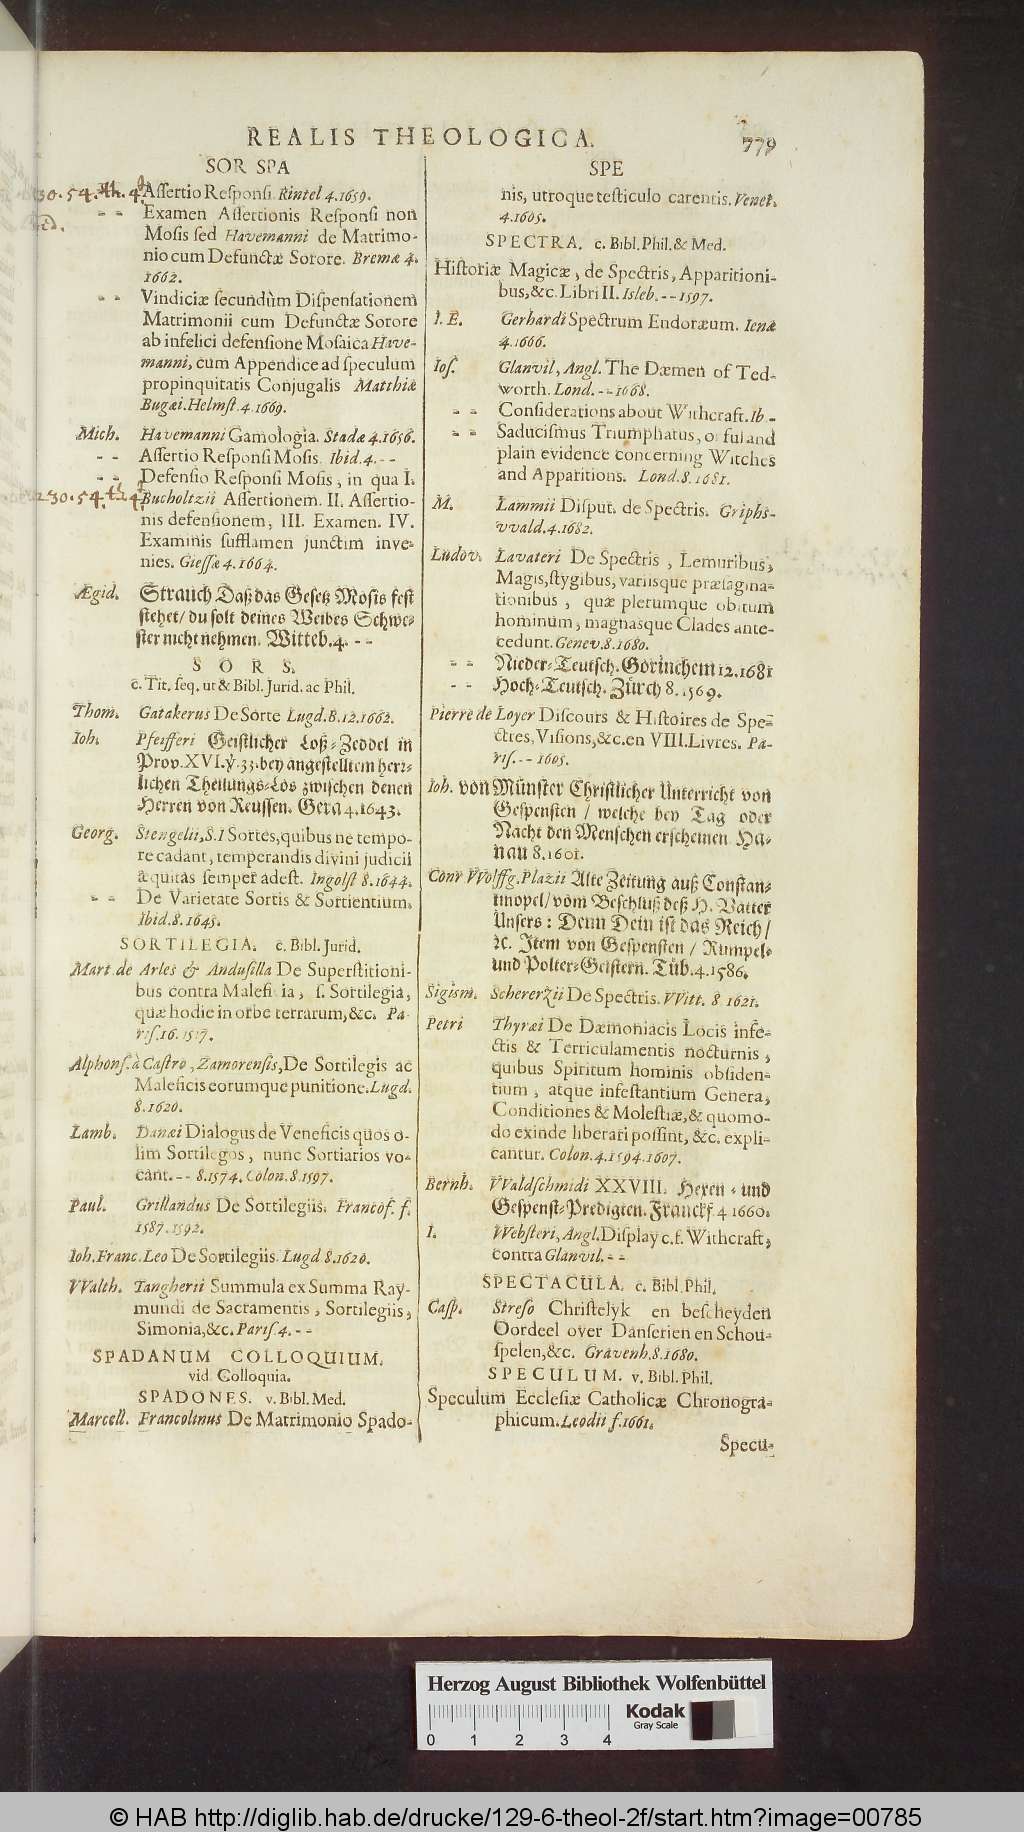 REALIS THEOLOGICA.
779
SOR SPA
230.54.th.4
Aſſertio Reſponſi. Rintel 4.1659.
- - Examen Aſſertionis Reſponſi non
Moſis ſed Havemanni de Matrimo-
nio cum Defunctæ Sorore. Bremæ 4.
1662.
- - Vindiciæ ſecundùm Diſpenſationem
Matrimonii cum Defunctæ Sorore
ab infelici defenſione Moſaica Have-
manni, cum Appendice ad ſpeculum
propinquitatis Conjugalis Matthiæ
Bugæi. Helmſt. 4.1669.
Mich. Havemanni Gamologia. Stadæ 4.1656.
- - Aſſertio Reſponſi Moſis. Ibid. 4. - -
- - Defenſio Reſponſi Moſis, in qua I.
230.54.th.4
Bucholtzii Aſſertionem. II. Aſſertio-
nis defenſionem, III. Examen. IV.
Examinis ſufflamen junctim inve-
nies. Gieſſæ 4.1664.
Ægid. Strauch Daß das Geſetz Moſis feſt
ſtehet/ du ſolt deines Weibes Schwe-
ſter nicht nehmen. Witteb. 4. - -
SORS.
c. Tit. ſeq. ut & Bibl. Jurid. ac Phil.
Thom. Gatakerus De Sorte Lugd. B.12.1662.
Ioh. Pfeifferi Geiſtlicher Loß-Zeddel in
Prov. XVI. ℣. 33. bey angeſtelltem hertz-
lichen Theilungs-Los zwiſchen denen
Herren von Reuſſen. Gera 4.1643.
Georg. Stengelii, S.I Sortes, quibus ne tempo-
re cadant, temperandis divini judicii
æquitas ſemper adeſt. Ingolſt 8.1644.
- - De Varietate Sortis & Sortientium.
Ibid. 8.1645.
SORTILEGIA. c. Bibl. Jurid.
Mart. de Arles & Anduſilla De Superſtitioni-
bus contra Maleficia, ſ. Sortilegia,
quæ hodie in orbe terrarum, &c. Pa-
riſ. 16. 1517.
Alphonſ. à Caſtro, Zamorenſis, De Sortilegis ac
Maleficis eorumque punitione. Lugd.
8.1620.
Lamb. Danæi Dialogus de Veneficis quos o-
lim Sortilegos, nunc Sortiarios vo-
cant. - - 8.1574. Colon. 8.1597.
Paul. Grillandus De Sortilegiis. Francof. f.
1587.1592.
Ioh. Franc. Leo De Sortilegiis. Lugd 8.1620.
VValth. Tangherii Summula ex Summa Ray-
mundi de Sacramentis, Sortilegiis,
Simonia, &c. Pariſ. 4. - -
SPADANUM COLLOQUIUM.
vid. Colloquia.
SPADONES. v. Bibl. Med.
Marcell. Francolinus De Matrimonio Spado-
SPE
nis, utroque teſticulo carentis. Venet.
4.1605.
SPECTRA. c. Bibl. Phil. & Med.
Hiſtoriæ Magicæ, de Spectris, Apparitioni-
bus, &c. Libri II. Isleb. - - 1597.
I. E. Gerhardi Spectrum Endoræum. Ienæ
4.1666.
Ioſ. Glanvil, Angl. The Dæmen of Ted-
worth. Lond. - - 1668.
- - Conſiderations about Withcraft. Ib -
- - Saduciſmus Triumphatus, or ful and
plain evidence concerning Witches
and Apparitions. Lond. 8. 1681.
M. Lammii Diſput. de Spectris. Griphs-
vvald. 4.1682.
Ludov. Lavateri De Spectris, Lemuribus,
Magis, ſtygibus, variisque præſagina-
tionibus, quæ plerumque obitum
hominum, magnasque Clades ante-
cedunt. Genev. 8.1680.
- - Nieder-Teutſch. Gorinchem 12.1681
- - Hoch-Teutſch. Zürch 8.1569.
Pierre de Loyer Diſcours & Hiſtoires de Spe-
ctres, Viſions, &c. en VIII. Livres. Pa-
riſ. - - 1605.
Ioh. von Münſter Chriſtlicher Unterricht von
Geſpenſten / welche bey Tag oder
Nacht den Menſchen erſcheinen. Ha-
nau 8.1601.
Conr VVolffg. Plazii Alte Zeitung auß Conſtan-
tinopel/ vom Beſchluß deß H. Vatter
Unſers: Denn Dein iſt das Reich/
ꝛc. Item von Geſpenſten / Rumpel-
und Polter-Geiſtern. Tüb. 4.1586.
Sigism. Schererzii De Spectris. VVitt. 8 1621.
Petri Thyræi De Dæmoniacis Locis infe-
ctis & Terriculamentis nocturnis,
quibus Spiritum hominis obſiden-
tium, atque infeſtantium Genera,
Conditiones & Moleſtiæ, & quomo-
do exinde liberari poſſint, &c. expli-
cantur. Colon. 4.1594.1607.
Bernh. VValdſchmidi XXVIII. Hexen - und
Geſpenſt-Predigten. Franckf. 4 1660.
I. Webſteri, Angl. Diſplay c.f. Withcraft,
contra Glanvil. - -
SPECTACULA. c. Bibl. Phil.
Caſp. Streſo Chriſtelyk en beſcheyden
Oordeel over Danſerien en Schou-
ſpelen, &c. Gravenh. 8.1680.
SPECULUM. v. Bibl. Phil.
Speculum Eccleſiæ Catholicæ Chronogra-
phicum. Leodii f. 1661.
Specu-
Herzog August Bibliothek Wolfenbüttel
Kodak
Gray Scale
0 1 2 3 4
© HAB http://diglib.hab.de/drucke/129-6-theol-2f/start.htm?image=00785